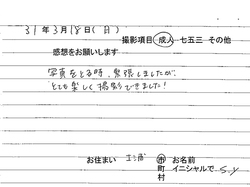 31年3月18日(月)
撮影項目 成人 七五三 その他
感想をお願いします
写真をとる時、緊張しましたが、
とても楽しく撮影できました!
お住まい 三浦 市町村 お名前 イニシャルで S.Y